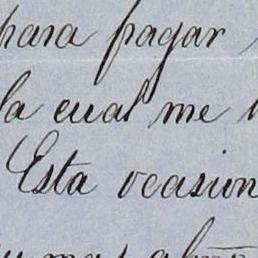 para pagar
la cual me
Esta ocasion